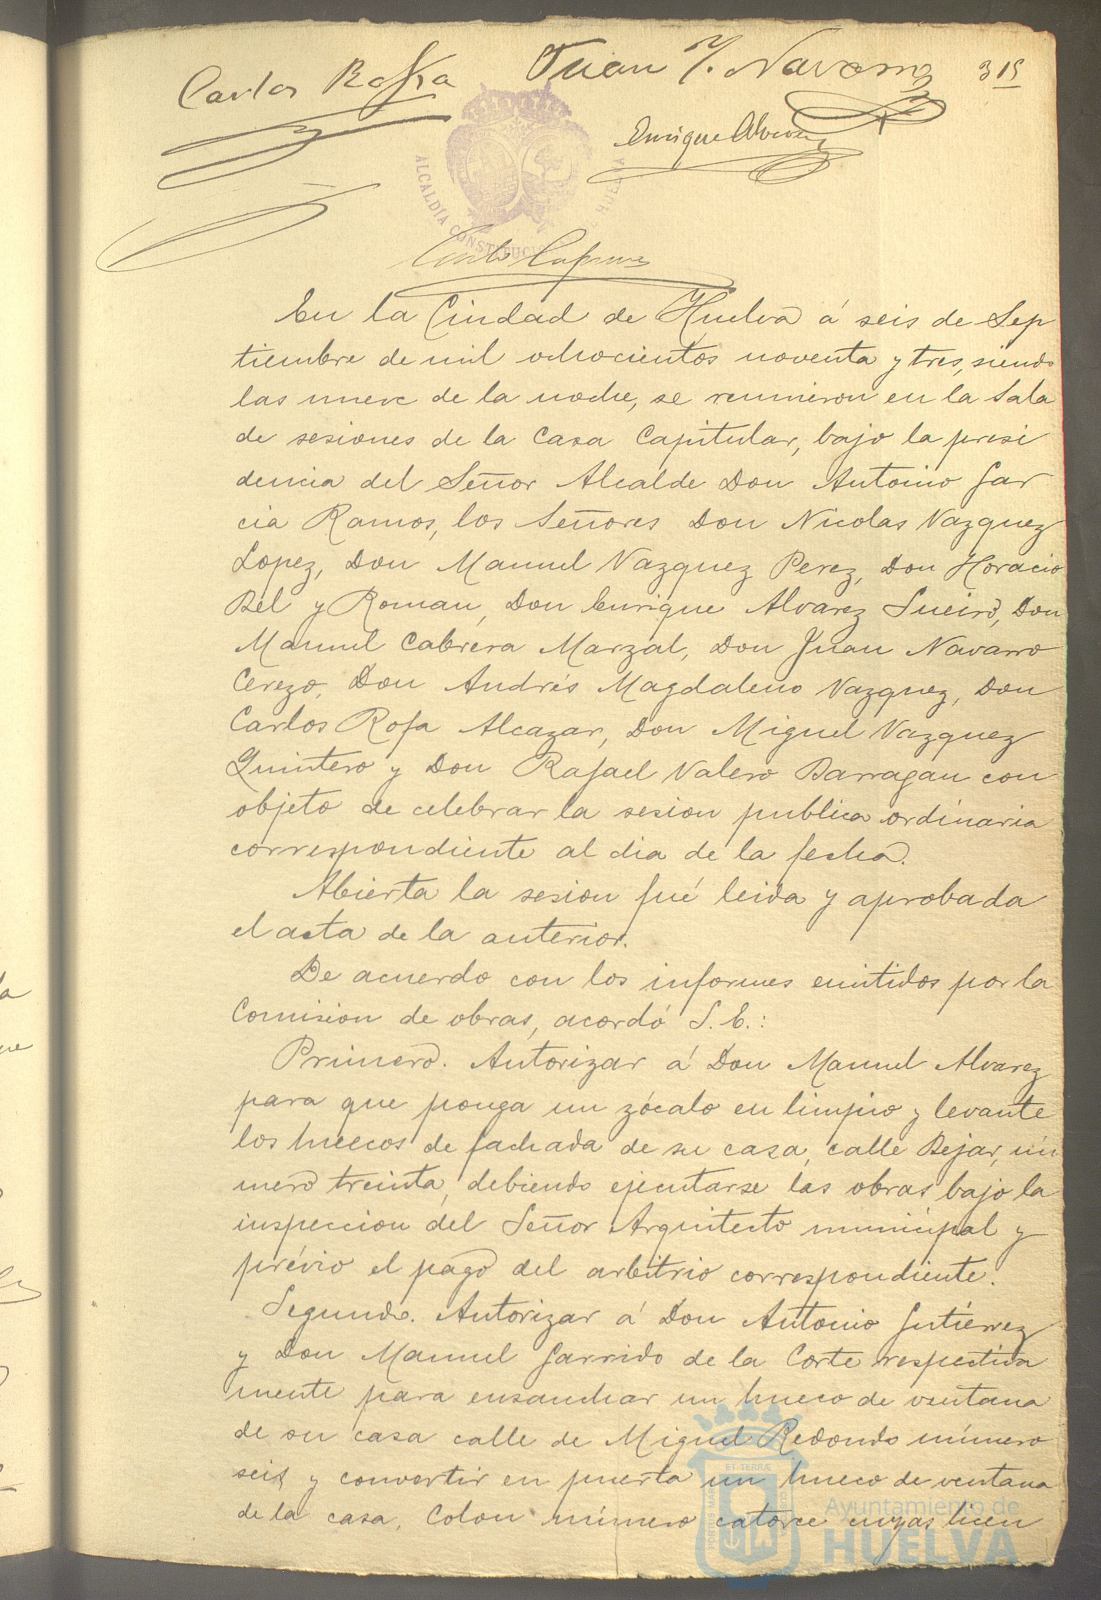 Carlos Rofa Juan M. Navarro 315
Enrique Alvarez
ALCALDÍA CONSTITUCIONAL HUELVA
En la Ciudad de Huelva á seis de Sep
tiembre de mil ochocientos noventa y tres, siendo
las nueve de la noche, se reunieron en la Sala
de sesiones de la Casa Capitular, bajo la presi
dencia del Señor Alcalde Don Antonio Gar
cia Ramos, los Señores Don Nicolas Vazquez
Lopez, Don Manuel Vazquez Perez, Don Horacio
Bel y Roman, Don Enrique Alvarez Sueiro, Don
Manuel Cabrera Marzal, Don Juan Navarro
Cerezo, Don Andrés Magdaleno Vazquez, Don
Carlos Rofa Alcazar, Don Miguel Vazquez
Quintero y Don Rafael Valero Barragan con
objeto de celebrar la sesion publica ordinaria
correspondiente al dia de la fecha.
Abierta la sesion fué leida y aprobada
el acta de la anterior.
De acuerdo con los informes emitidos por la
Comision de obras, acordó S. E.:
Primero. Autorizar á Don Manuel Alvarez
para que ponga un zócalo en limpio y levante
los huecos de fachada de su casa, calle Bejar, nú
mero treinta, debiendo ejecutarse las obras bajo la
inspeccion del Señor Arquitecto municipal y
prévio el pago del arbitrio correspondiente.
Segundo. Autorizar á Don Antonio Gutiérrez
y Don Manuel Garrido de la Corte respectiva
mente para ensanchar un hueco de ventana
de su casa calle de Miguel Redondo número
seis y convertir en puerta un hueco de ventana
de la casa, Colon número catorce cuyas licen
Ayuntamiento de
HUELVA